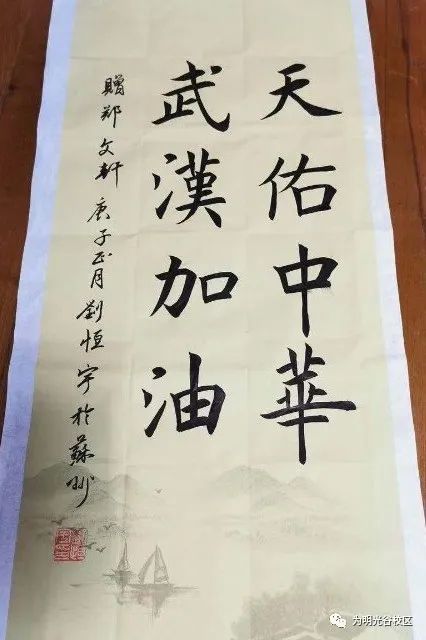 天佑中華
武漢加油
贈鄭文軒 庚子正月 劉恒宇於蘇州
为明光谷校区